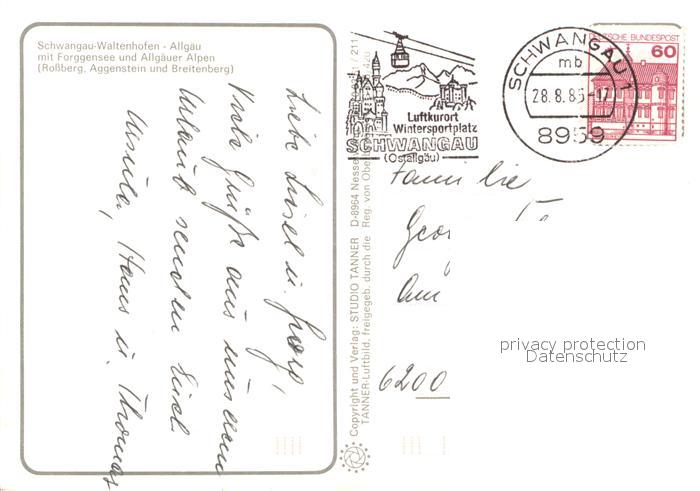 Schwangau-Waltenhofen - Allgäu
mit Forggensee und Allgäuer Alpen
(Roßberg, Aggenstein und Breitenberg)
Liebe Liesel u. Georg,
Viele Grüße aus unserem
Urlaub senden Euch
Ursula, Hans u. Thomas
Copyright und Verlag: STUDIO TANNER D-8964 Nesselw
TANNER-Luftbild, freigegeb. durch die Reg. von Ober
Luftkurort
Wintersportplatz
SCHWANGAU
(Ostallgäu)
SCHWANGAU 1
mb
8959
DEUTSCHE BUNDESPOST
60
Familie
Geor
Am
6200
privacy protection
Datenschutz